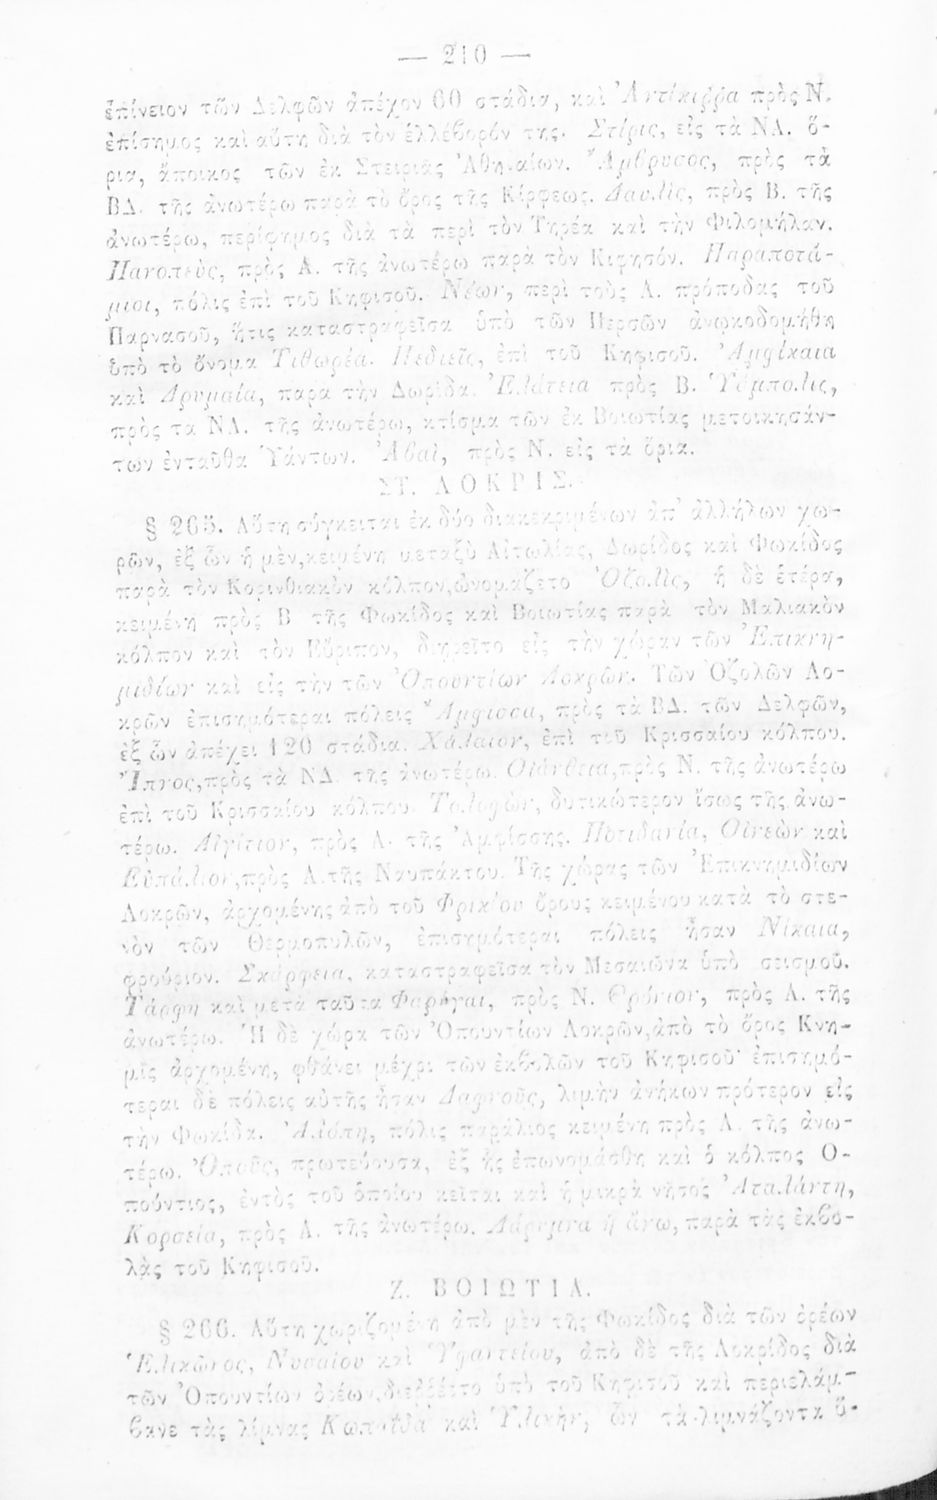 — 210 —
ἐπίνειον τῶν Δελφῶν ἀπέχον 60 στάδια, καὶ Ἀντίκιῤῥα πρὸς Ν.
ἐπίσημος καὶ αὕτη διὰ τὸν ἑλλέβορόν της. Στίρις, εἰς τὰ ΝΑ. ὅ-
ρια, ἄποικος τῶν ἐκ Στειριᾶς Ἀθηναίων. Ἄμβρυσος, πρὸς τὰ
ΒΔ. τῆς ἀνωτέρω παρὰ τὸ ὄρος τῆς Κίρφεως. Δαυλὶς, πρὸς Β. τῆς
ἀνωτέρω, περίφημος διὰ τὰ περὶ τὸν Τηρέα καὶ τὴν Φιλομήλαν.
Πανοπεὺς, πρὸς Α. τῆς ἀνωτέρω παρὰ τὸν Κιφησόν. Παραποτά-
μιοι, πόλις ἐπὶ τοῦ Κηφισοῦ. Νέων, περὶ τοὺς Α. πρόποδας τοῦ
Παρνασοῦ, ἥτις καταστραφεῖσα ὑπὸ τῶν Περσῶν ἀνῳκοδομήθη
ὑπὸ τὸ ὄνομα Τιθωρέα. Πεδιεῖς, ἐπὶ τοῦ Κηφισοῦ. Ἀμφίκαια
καὶ Δρυμαία, παρὰ τὴν Δωρίδα. Ἐλάτεια πρὸς Β. Ὑάμπολις,
πρὸς τὰ ΝΑ. τῆς ἀνωτέρω, κτίσμα τῶν ἐκ Βοιωτίας μετοικησάν-
των ἐνταῦθα Ὑάντων. Ἀβαὶ, πρὸς Ν. εἰς τὰ ὅρια.
ΣΤ. ΛΟΚΡΙΣ.
§ 265. Αὕτη σύγκειται ἐκ δύο διακεκριμένων ἀπ' ἀλλήλων χω-
ρῶν, ἐξ ὧν ἡ μὲν, κειμένη μεταξὺ Αἰτωλίας, Δωρίδος καὶ Φωκίδος
παρὰ τὸν Κορινθιακὸν κόλπον, ὠνομάζετο Ὀζολὶς, ἡ δὲ ἑτέρα,
κειμένη πρὸς Β τῆς Φωκίδος καὶ Βοιωτίας παρὰ τὸν Μαλιακὸν
κόλπον καὶ τὸν Εὔριπον, διῃρεῖτο εἰς τὴν χώραν τῶν Ἐπικνη-
μιδίων καὶ εἰς τὴν τῶν Ὀπουντίων Λοκρῶν. Τῶν Ὀζολῶν Λο-
κρῶν ἐπισημότεραι πόλεις Ἄμφισσα, πρὸς τὰ ΒΔ. τῶν Δελφῶν,
ἐξ ὧν ἀπέχει 120 στάδια. Χάλαιον, ἐπὶ τοῦ Κρισσαίου κόλπου.
Ἴπνος, πρὸς τὰ ΝΔ. τῆς ἀνωτέρω. Οἰάνθεια, πρὸς Ν. τῆς ἀνωτέρω
ἐπὶ τοῦ Κρισσαίου κόλπου. Τολοφὼν, δυτικώτερον ἴσως τῆς ἀνω-
τέρω. Αἰγίτιον, πρὸς Α. τῆς Ἀμφίσσης. Ποτιδανία, Οἰνεὼν καὶ
Εὐπάλιον, πρὸς Α. τῆς Ναυπάκτου. Τῆς χώρας τῶν Ἐπικνημιδίων
Λοκρῶν, ἀρχομένης ἀπὸ τοῦ Φρικίου ὄρους κειμένου κατὰ τὸ στε-
νὸν τῶν Θερμοπυλῶν, ἐπισημότεραι πόλεις ἦσαν Νίκαια,
φρούριον. Σκάρφεια, καταστραφεῖσα τὸν Μεσαιῶνα ὑπὸ σεισμοῦ.
Τάρφη καὶ μετὰ ταῦτα Φαρύγαι, πρὸς Ν. Θρόνιον, πρὸς Α. τῆς
ἀνωτέρω. Ἡ δὲ χώρα τῶν Ὀπουντίων Λοκρῶν, ἀπὸ τὸ ὄρος Κνη-
μὶς ἀρχομένη, φθάνει μέχρι τῶν ἐκβολῶν τοῦ Κηφισοῦ· ἐπισημό-
τεραι δὲ πόλεις αὐτῆς ἦσαν Δαφνοῦς, λιμὴν ἀνήκων πρότερον εἰς
τὴν Φωκίδα. Ἀλόπη, πόλις παράλιος κειμένη πρὸς Α. τῆς ἀνω-
τέρω. Ὀποῦς, πρωτεύουσα, ἐξ ἧς ἐπωνομάσθη καὶ ὁ κόλπος Ὀ-
πούντιος, ἐντὸς τοῦ ὁποίου κεῖται καὶ ἡ μικρὰ νῆσος Ἀταλάντη,
Κορσεία, πρὸς Α. τῆς ἀνωτέρω. Λάρυμνα ἡ ἄνω, παρὰ τὰς ἐκβο-
λὰς τοῦ Κηφισοῦ.
Ζ. ΒΟΙΩΤΙΑ.
§ 266. Αὕτη χωριζομένη ἀπὸ μὲν τῆς Φωκίδος διὰ τῶν ὀρέων
Ἑλικῶνος, Νυσαίου καὶ Ὑφαντείου, ἀπὸ δὲ τῆς Λοκρίδος διὰ
τῶν Ὀπουντίων ὀρέων, διεῤῥέετο ὑπὸ τοῦ Κηφισοῦ καὶ περιελάμ-
βανε τὰς λίμνας Κωπαΐδα καὶ Ὑλικὴν, ὧν τὰ λιμνάζοντα ὕ-